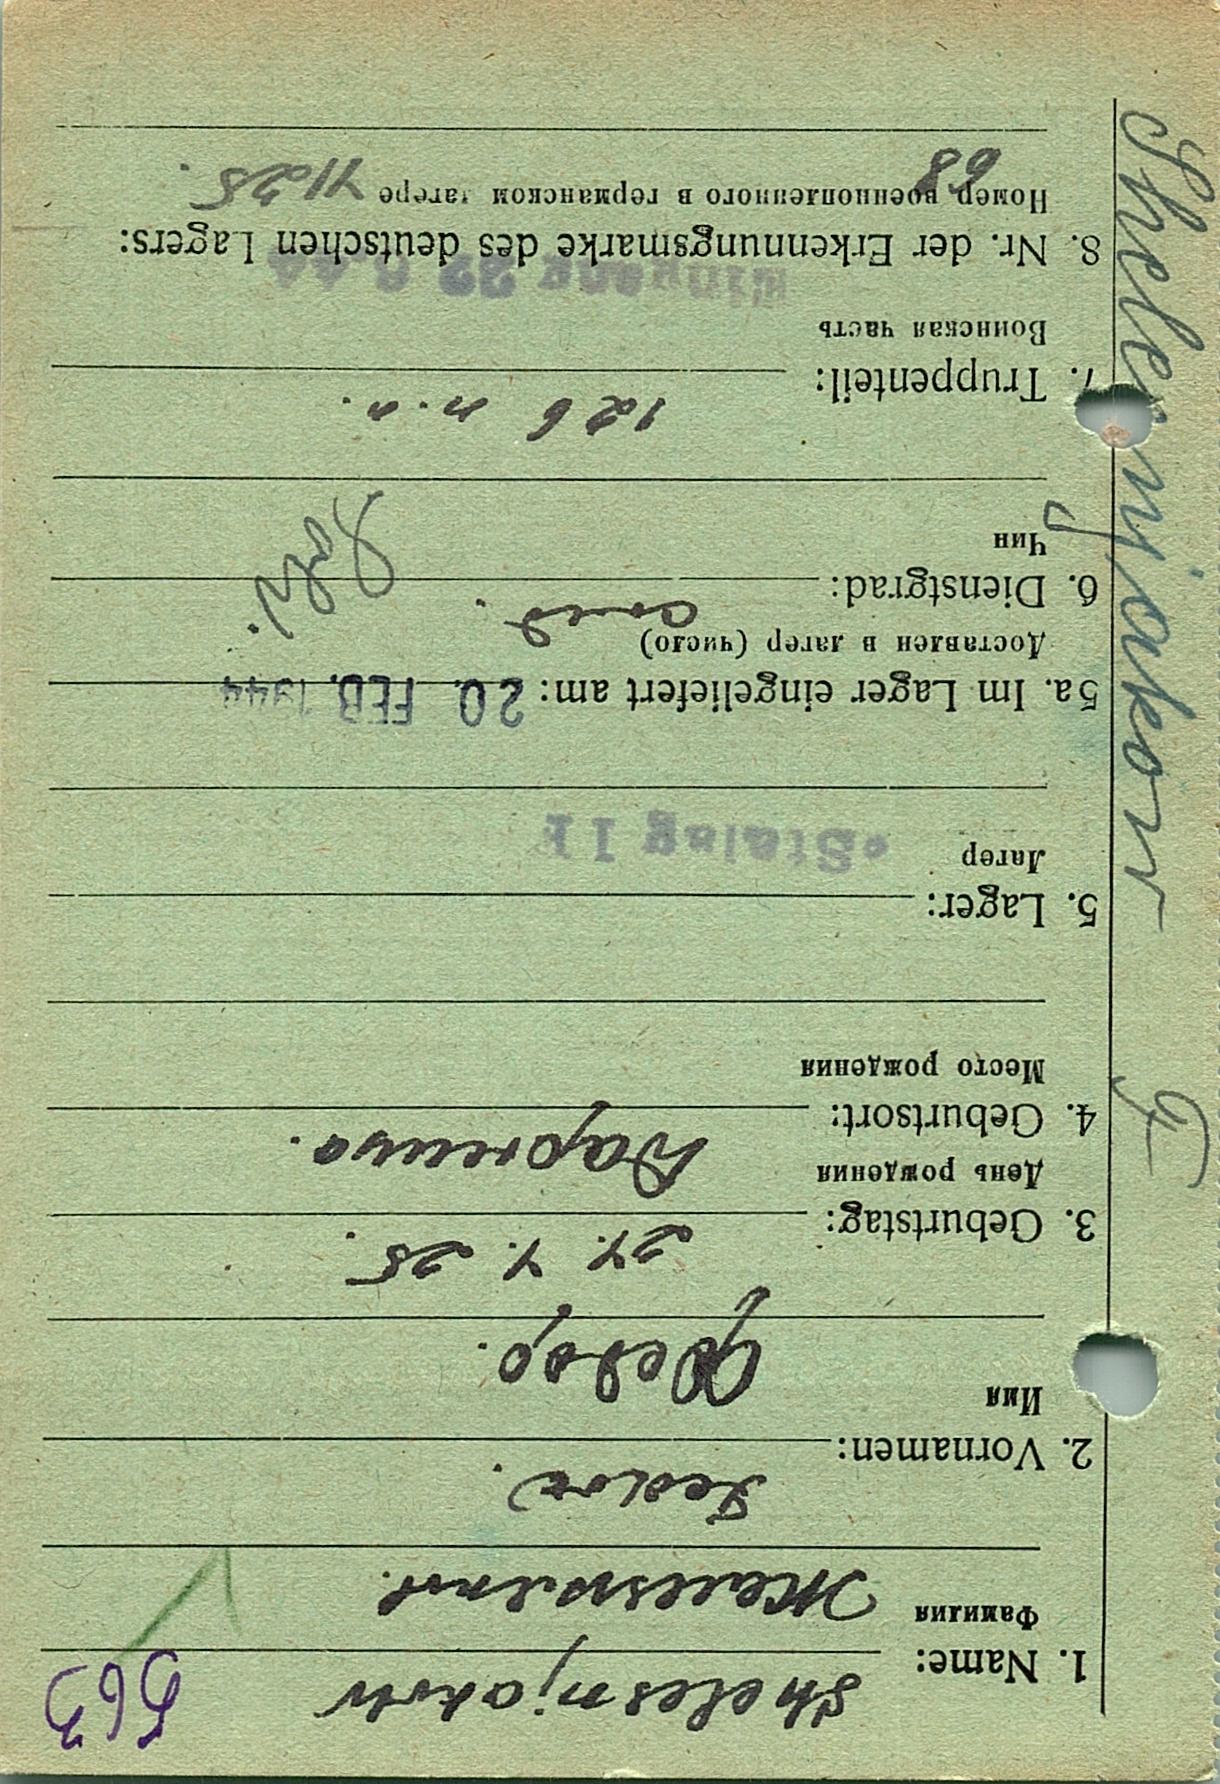 563
Shelesnjakow
1. Name:
Фамилия
Железняков.
Fedor.
2. Vornamen:
Имя
Федор.
27. 7. 25.
3. Geburtstag:
День рождения
4. Geburtsort:
Место рождения
5. Lager:
Лагерь
Stalag I F
5a. Im Lager eingeliefert am: 20. FEB. 1944
Доставлен в лагерь (число)
6. Dienstgrad:
Чин
126 п.п.
7. Truppenteil:
Воинская часть
Eingang 22
8. Nr. der Erkennungsmarke des deutschen Lagers:
Номер военнопленного в германском лагере
68
7125.
Shelesnjakow F